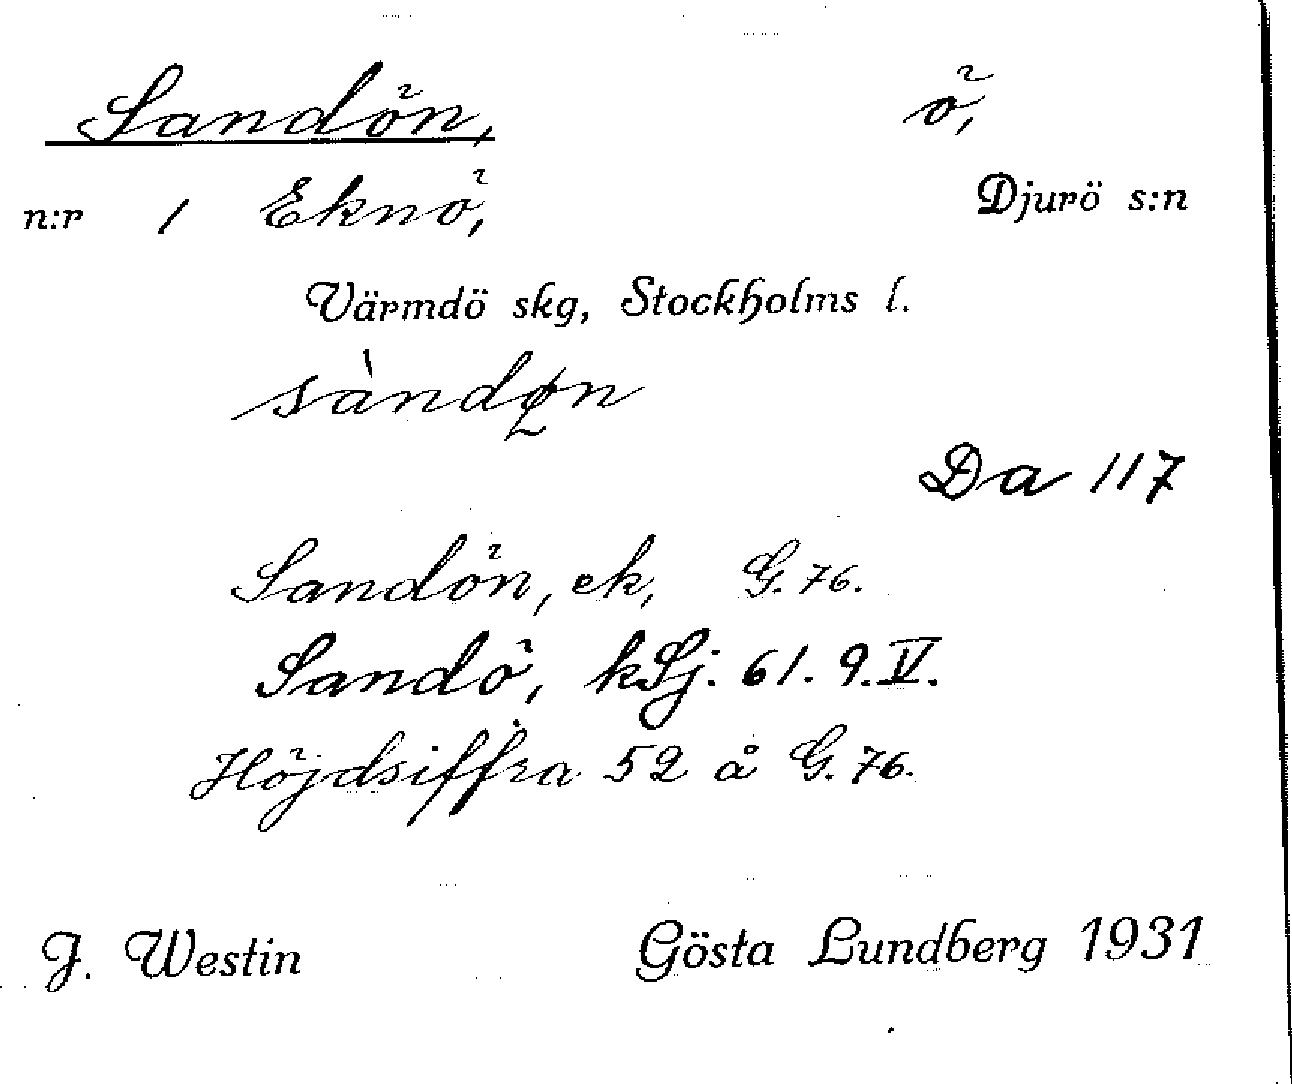 Sandön, ö,
n:r 1 Eknö, Djurö s:n
Värmdö skg, Stockholms l.
sàndøn
Da 117
Sandön, ek, G. 76.
Sandö, kSj: 61. 9. V.
Höjdsiffra 52 å G. 76.
J. Westin Gösta Lundberg 1931